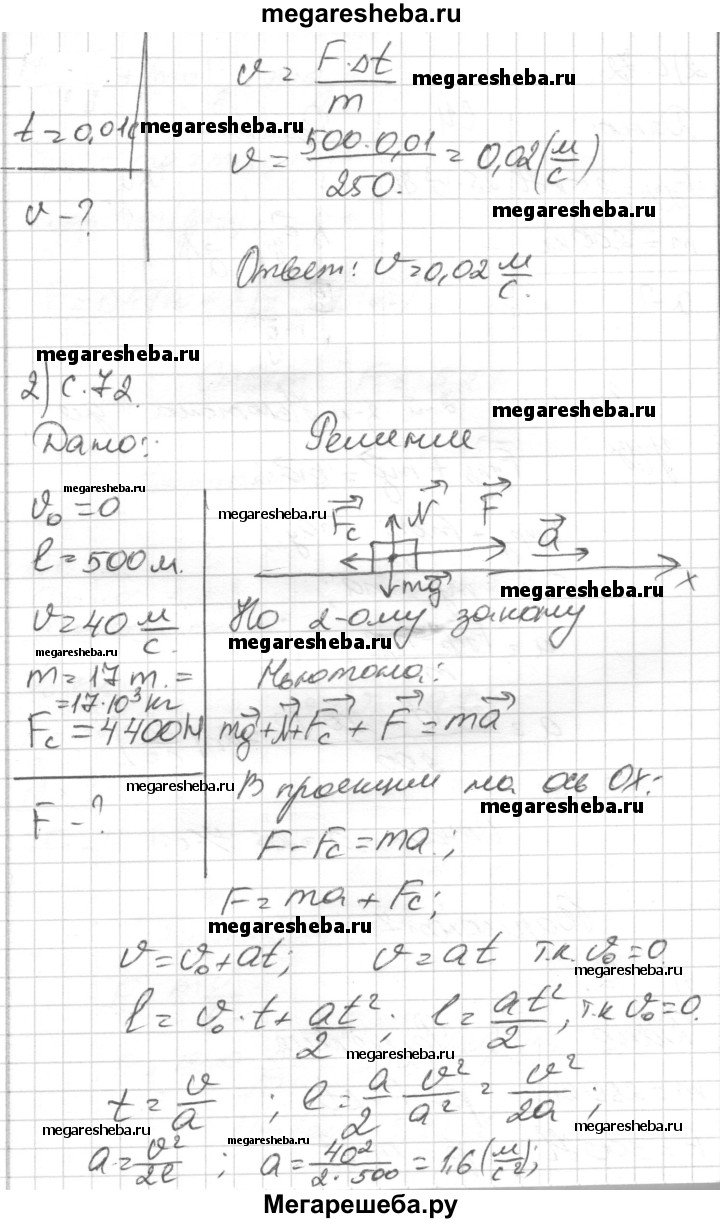 megaresheba.ru
v = F·Δt / m
megaresheba.ru
t = 0,01с
megaresheba.ru
v = 500·0,01 / 250. = 0,02 (м/с)
v - ?
megaresheba.ru
Ответ: v = 0,02 м/с.
megaresheba.ru
2) с.72.
megaresheba.ru
Дано: Решение
megaresheba.ru
v₀ = 0
megaresheba.ru
F⃗c N⃗ F⃗ a⃗
l = 500 м.
mg⃗ x
megaresheba.ru
v = 40 м/с. По 2-ому закону
megaresheba.ru
megaresheba.ru
m = 17 т. = Ньютона:
= 17·10³ кг
Fc = 4400 Н mg⃗ + N⃗ + F⃗c + F⃗ = ma⃗
megaresheba.ru
В проекции на ось Ox:
megaresheba.ru
F - ?
F - Fc = ma;
F = ma + Fc;
megaresheba.ru
v = v₀ + at; v = at т.к. v₀ = 0.
megaresheba.ru
l = v₀·t + at²/2; l = at²/2, т.к v₀ = 0.
megaresheba.ru
t = v/a; l = a/2 v²/a² = v²/2a;
megaresheba.ru
megaresheba.ru
megaresheba.ru
a = v²/2l; a = 40²/2·500 = 1,6 (м/с²);
Мегарешеба.ру